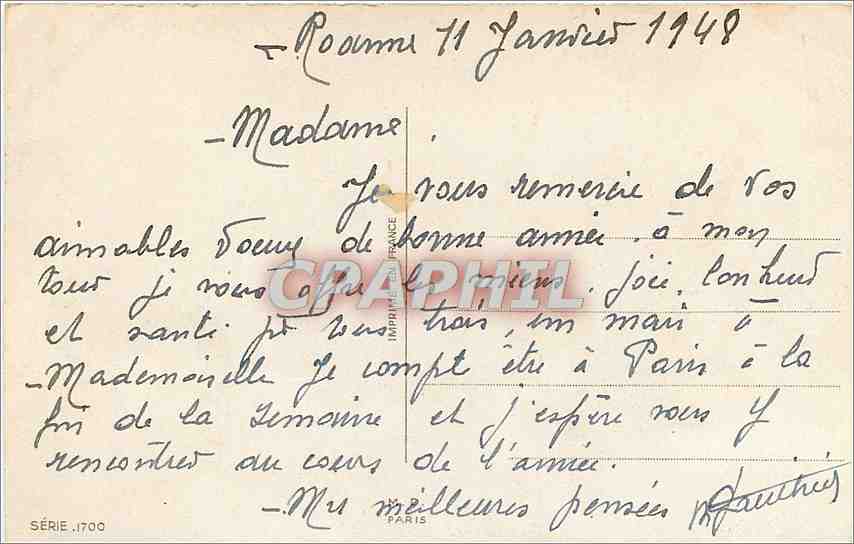 - Roanne 11 Janvier 1948
- Madame.
Je vous remercie de vos
aimables voeux de bonne année. à mon
tour je vous offre les miens. joie, bonheur
et santé pr vous trois, un mari à
- Mademoiselle Je compte être à Paris à la
fin de la semaine et j'espère vous y
rencontrer au cours de l'année.
- Mes meilleures pensées Gauthier
IMPRIMÉ EN FRANCE
CPAPHIL
PARIS
SÉRIE .1700